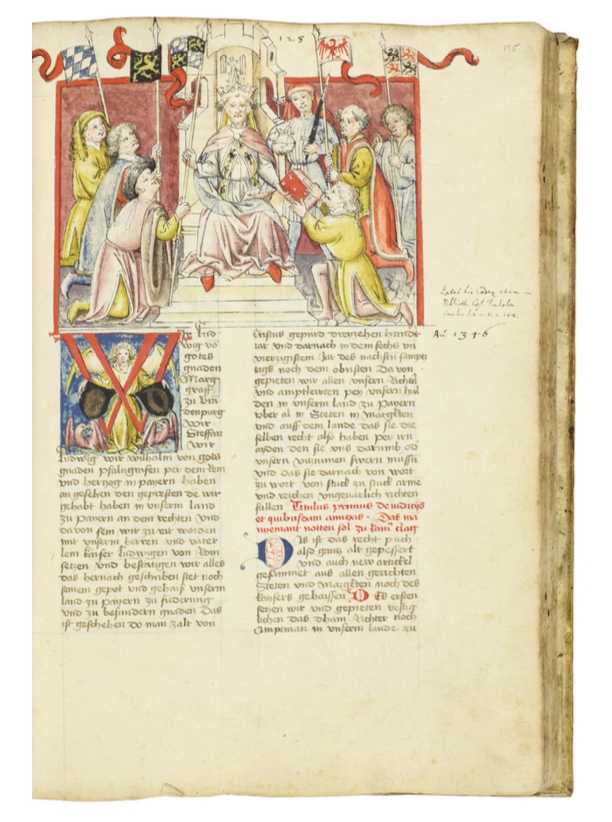 128
Ir Lud
wig vō
gotes
gnaden
Marg
graff
zu Bran
denpurg
Wir
Steffan
Wir
Ludwig wir wilhalm von gots
gnaden pfaltzgrefen per dem Rein
und hertzog in payern haben
an gesehen den geprsten de wir
gehabt haben in unserm land
zu payern an dem rechten und
davon sein wir zu rat worden
mit unserm herren und vater
lem kaiser Ludwigen von Rom
setzen und bestatigen wir alles
das hernach geschriben stet noch
seinem gepot und gehaiß unserm
land zu payern zu fuderung
und zu besundern gnaden Das
ist geschehen do man zalt von
Cristus gepurd drewzehen hundt
iar und darnach in dem sechs un
vierzigistem Jar des nachsten samps
tags noch dem obristen Da von
gepieten wir allen unsern Richtn
und amptlewten pey unsern hul
den in unserm land zu payern
uber al in Steten in margkten
und auff dem lande das sie die
selben recht also haben pey irn
ayden die sie uns darumb od
unsern viztumen swern mussn
und das sie darnach von wort
zu wort von stuck zu stuck arme
und reichen ungevarlich richten
sullen Titulus primus de iudicijs
et quibusdam annexis · Das ma
nyemant noten sol zu kainr clag
Das ist das recht puch
also gantz alt gepessert
und auch new artickel
gesammet aus allen gerichten
Steten und Margkten noch des
kaisers gehaissen Des ersten
seczen wir und gepieten vestig
lichen das dhain Richter noch
Amptman in unserm lande zu
A° 1346